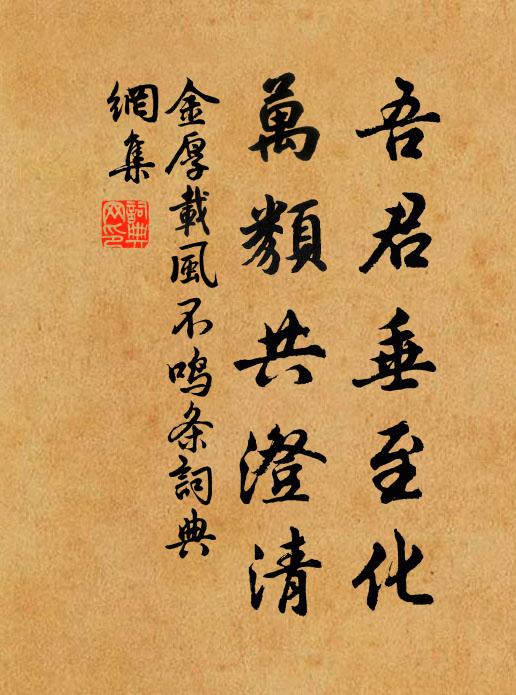 吾君垂至化
萬類共澄清
金厚載風不鸣条詞典
網集
詞典
网印